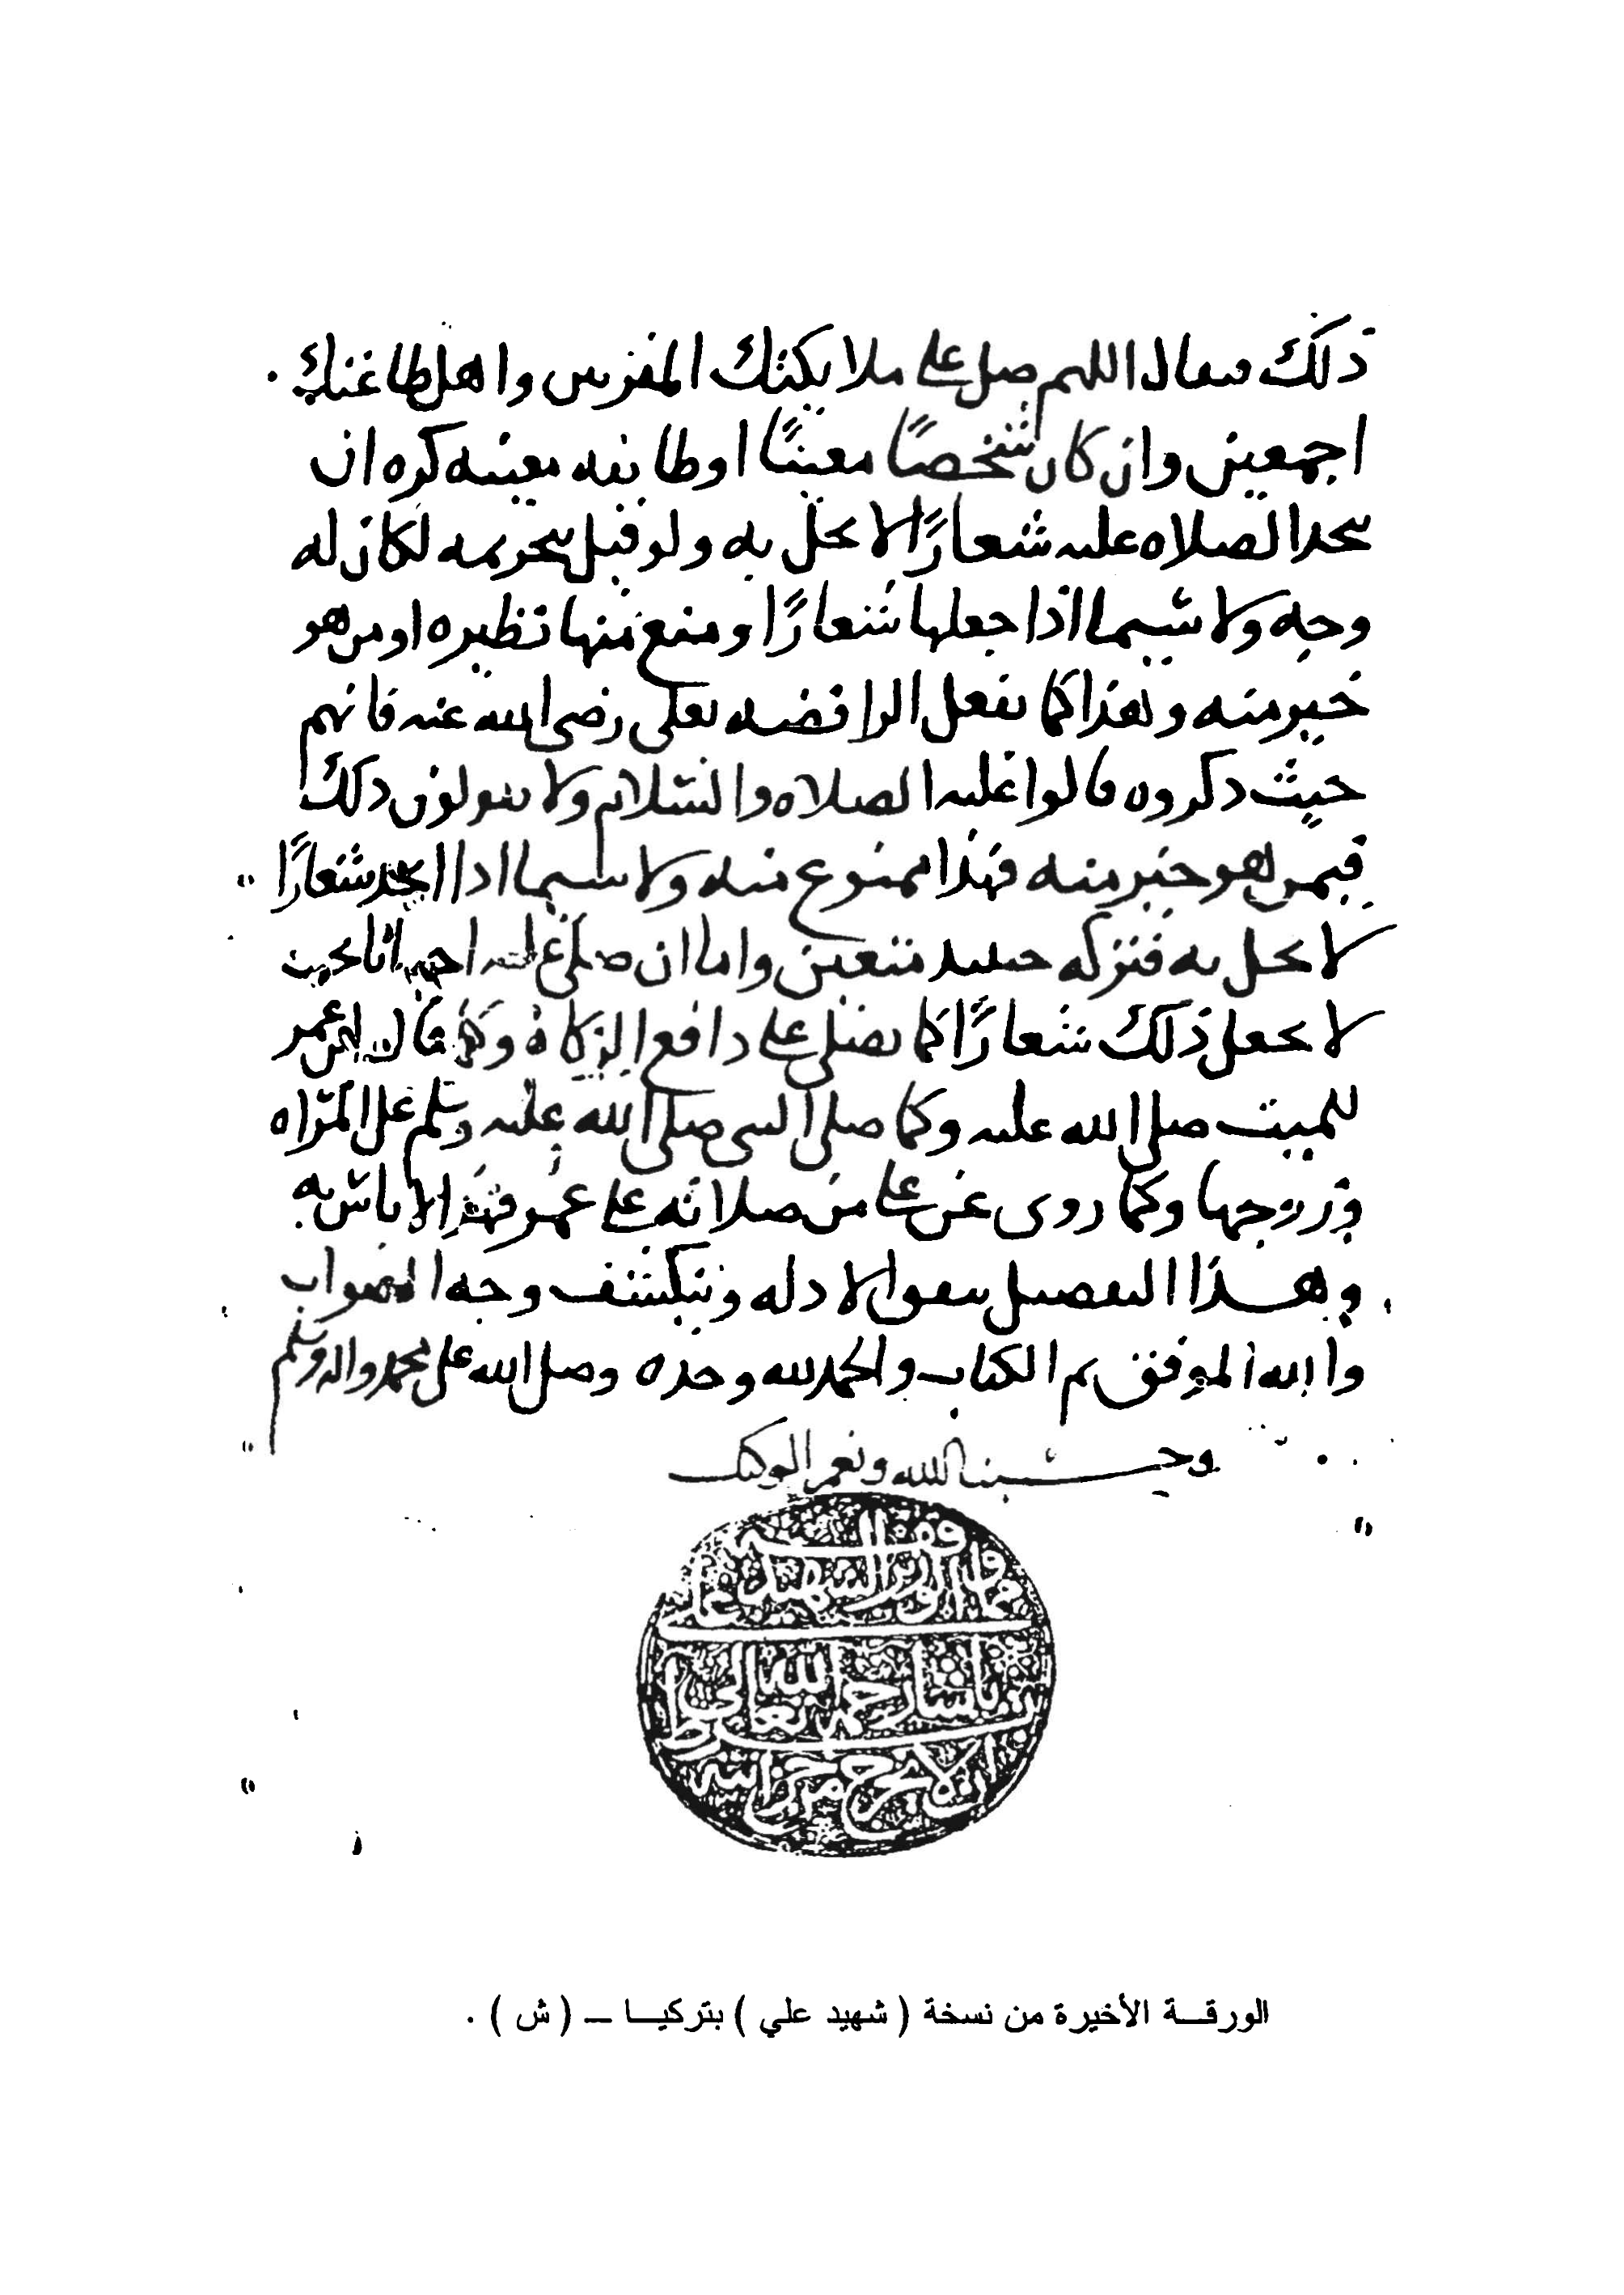 ذلك فيقال اللهم صل على ملائكتك المقربين واهل طاعتك
اجمعين وان كان شخصًا معينًا او طائفه معينه كره ان
يتخذ الصلاه عليه شعارًا لا يخل به ولو قيل بتحريمه لكان له
وجه ولا سيما اذا جعلها شعارًا ومنع منها نظيره او من هو
خير منه وهذا كما تفعل الرافضه بعلي رضي الله عنه فانهم
حيث ذكروه قالوا عليه الصلاه والسلام ولا يقولون ذلك
فيمن هو خير منه فهذا ممنوع منه ولا سيما اذا اتخذ شعارًا
لا يخل به فتركه حينئذ متعين واما ان صلى عليه احيانا بحيث
لا يجعل ذلك شعارًا كما يصلى على دافع الزكاة وكما قال ابن عمر
للميت صلى الله عليه وكما صلى النبي صلى الله عليه وسلم على المرّاه
وزوجها وكما روي عن علي من صلاته على عمر فهذا لا باس به
وهذا التفصيل تتفق الادله وينكشف وجه الصواب
والله الموفق تم الكتاب والحمد لله وحده وصلى الله على محمد واله وسلم
وحسبنا الله ونعم الوكيل
مما وقفه
الوزير الشهيد علي
باشا رحمه الله تعالى
بشرط ان لا يخرج من خزانته
الورقة الأخيرة من نسخة ( شهيد علي ) بتركيا – ( ش ) .